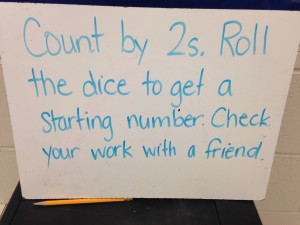 Count by 2s. Roll
the dice to get a
starting number. Check
your work with a friend.